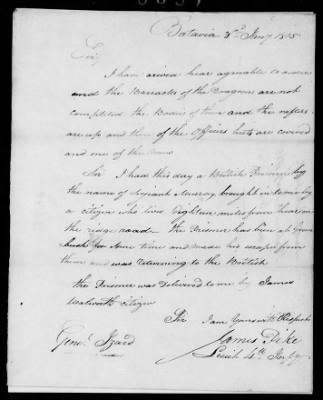 Batavia 8th Jany 1815
Sir
I have arived hear agreable to orders
and the Barracks of the Dragoons are not
completed the Bodies of them and the rafters
are up and three of the Officers huts are covered
and one of the
Sir I had this day a British Prisoner by
the name of Murray brought in to me by
a citizen who lives Eighteen miles from hear on
the ridge road The Prisoner has been at Green
bush for Some time and made his escape from
there and was returning to the British
the Prisoner was Delivered to me by James
Walworth citizen
Sir I am yours with Respect
James Pike
Genl Izard
Lieut 4th Infy